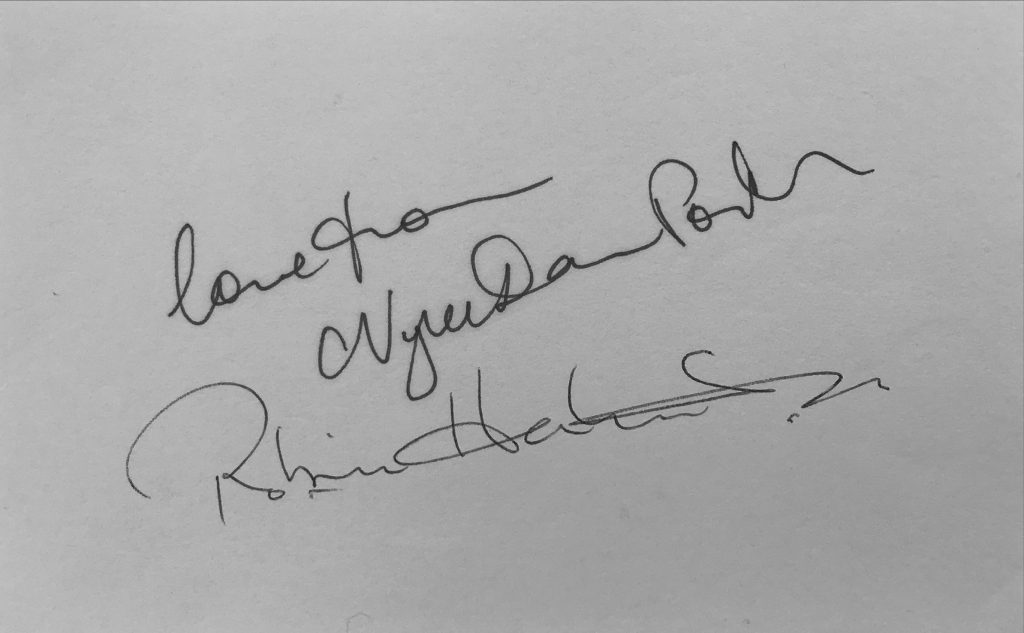 love from
Nyree Dawn Porter
Robin